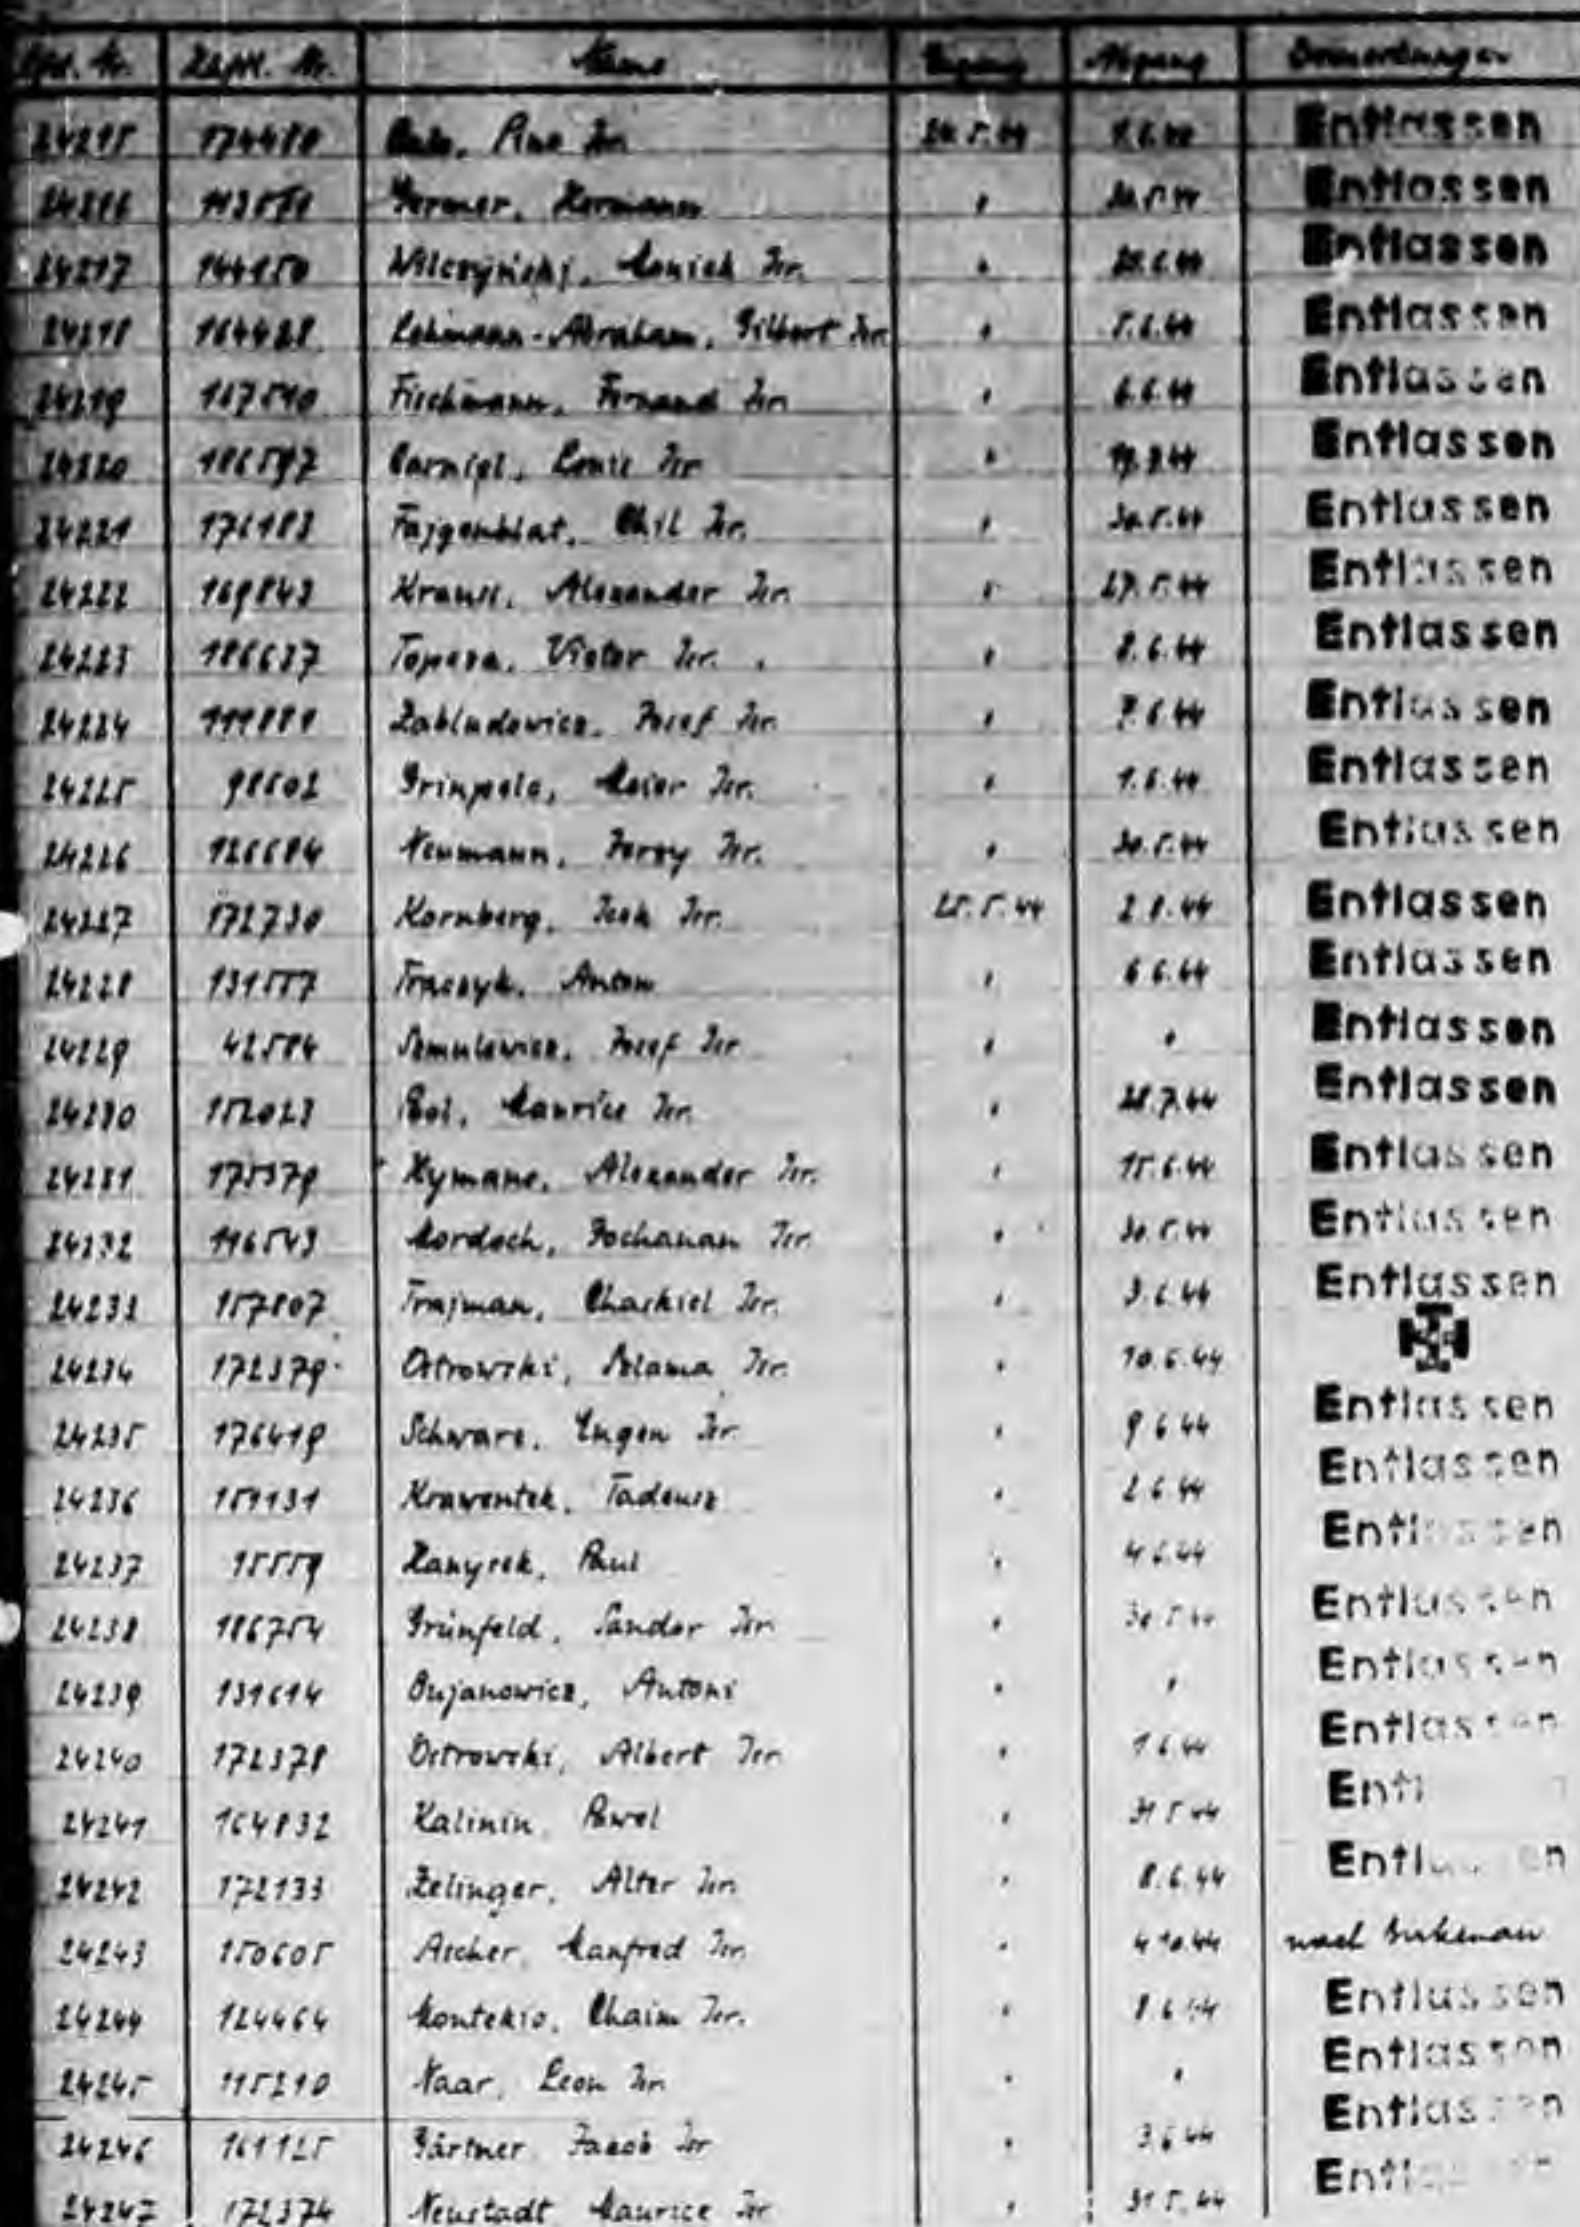 Lfd. Nr. Häftl. Nr. Name Zugang Abgang Bemerkungen
24215 Isr. 24.5.44 Entlassen
24216 Germer, Hermann " 30.5.44 Entlassen
24217 144150 Isr. " Entlassen
24218 Lehmann-Abraham, Gilbert Isr. " 5.6.44 Entlassen
24219 167510 Fischmann, Fernand Isr. " 6.6.44 Entlassen
24220 186597 Isr. " Entlassen
24221 176183 Fajgenblat, Chil Isr. " 30.5.44 Entlassen
24222 169843 Alexander Isr. " 27.5.44 Entlassen
24223 186637 Victor Isr. " 8.6.44 Entlassen
24224 Zabludowicz, Josef Isr. " 7.6.44 Entlassen
24225 98602 Meier Isr. " 1.6.44 Entlassen
24226 126684 Neumann, Isr. " 30.5.44 Entlassen
24227 172730 Kornberg, Isr. 25.5.44 2.8.44 Entlassen
24228 131557 Traczyk, Anton " 6.6.44 Entlassen
24229 42584 Josef Isr. " " Entlassen
24230 152023 Maurice Isr. " 28.7.44 Entlassen
24231 175379 Hymans, Alexander Isr. " 15.6.44 Entlassen
24232 116543 Mordoch, Jochanan Isr. " 30.5.44 Entlassen
24233 157807 Frajman, Chaskiel Isr. " 3.6.44 Entlassen
24234 172379 Ostrowski, Szlama Isr. " 10.6.44
24235 176419 Schwarz, Eugen Isr. " 9.6.44 Entlassen
24236 151131 Tadeusz " 2.6.44 Entlassen
24237 15559 Paul " 4.6.44 Entlassen
24238 186754 Grünfeld, Sandor Isr. " 30.5.44 Entlassen
24239 131614 Bujanowicz, Antoni " " Entlassen
24240 172378 Ostrowski, Albert Isr. " 1.6.44 Entlassen
24241 164832 Kalinin, Pawel " 31.5.44
24242 172133 Zelinger, Alter Isr. " 8.6.44 Entlassen
24243 150605 Ascher, Manfred Isr. " 4.10.44 nach Birkenau
24244 124464 Montekio, Chaim Isr. " 8.6.44 Entlassen
24245 115210 Naar, Leon Isr. " " Entlassen
24246 161125 Gärtner, Jacob Isr. " 3.6.44 Entlassen
24247 172374 Neustadt, Maurice Isr. " 31.5.44 Entlassen